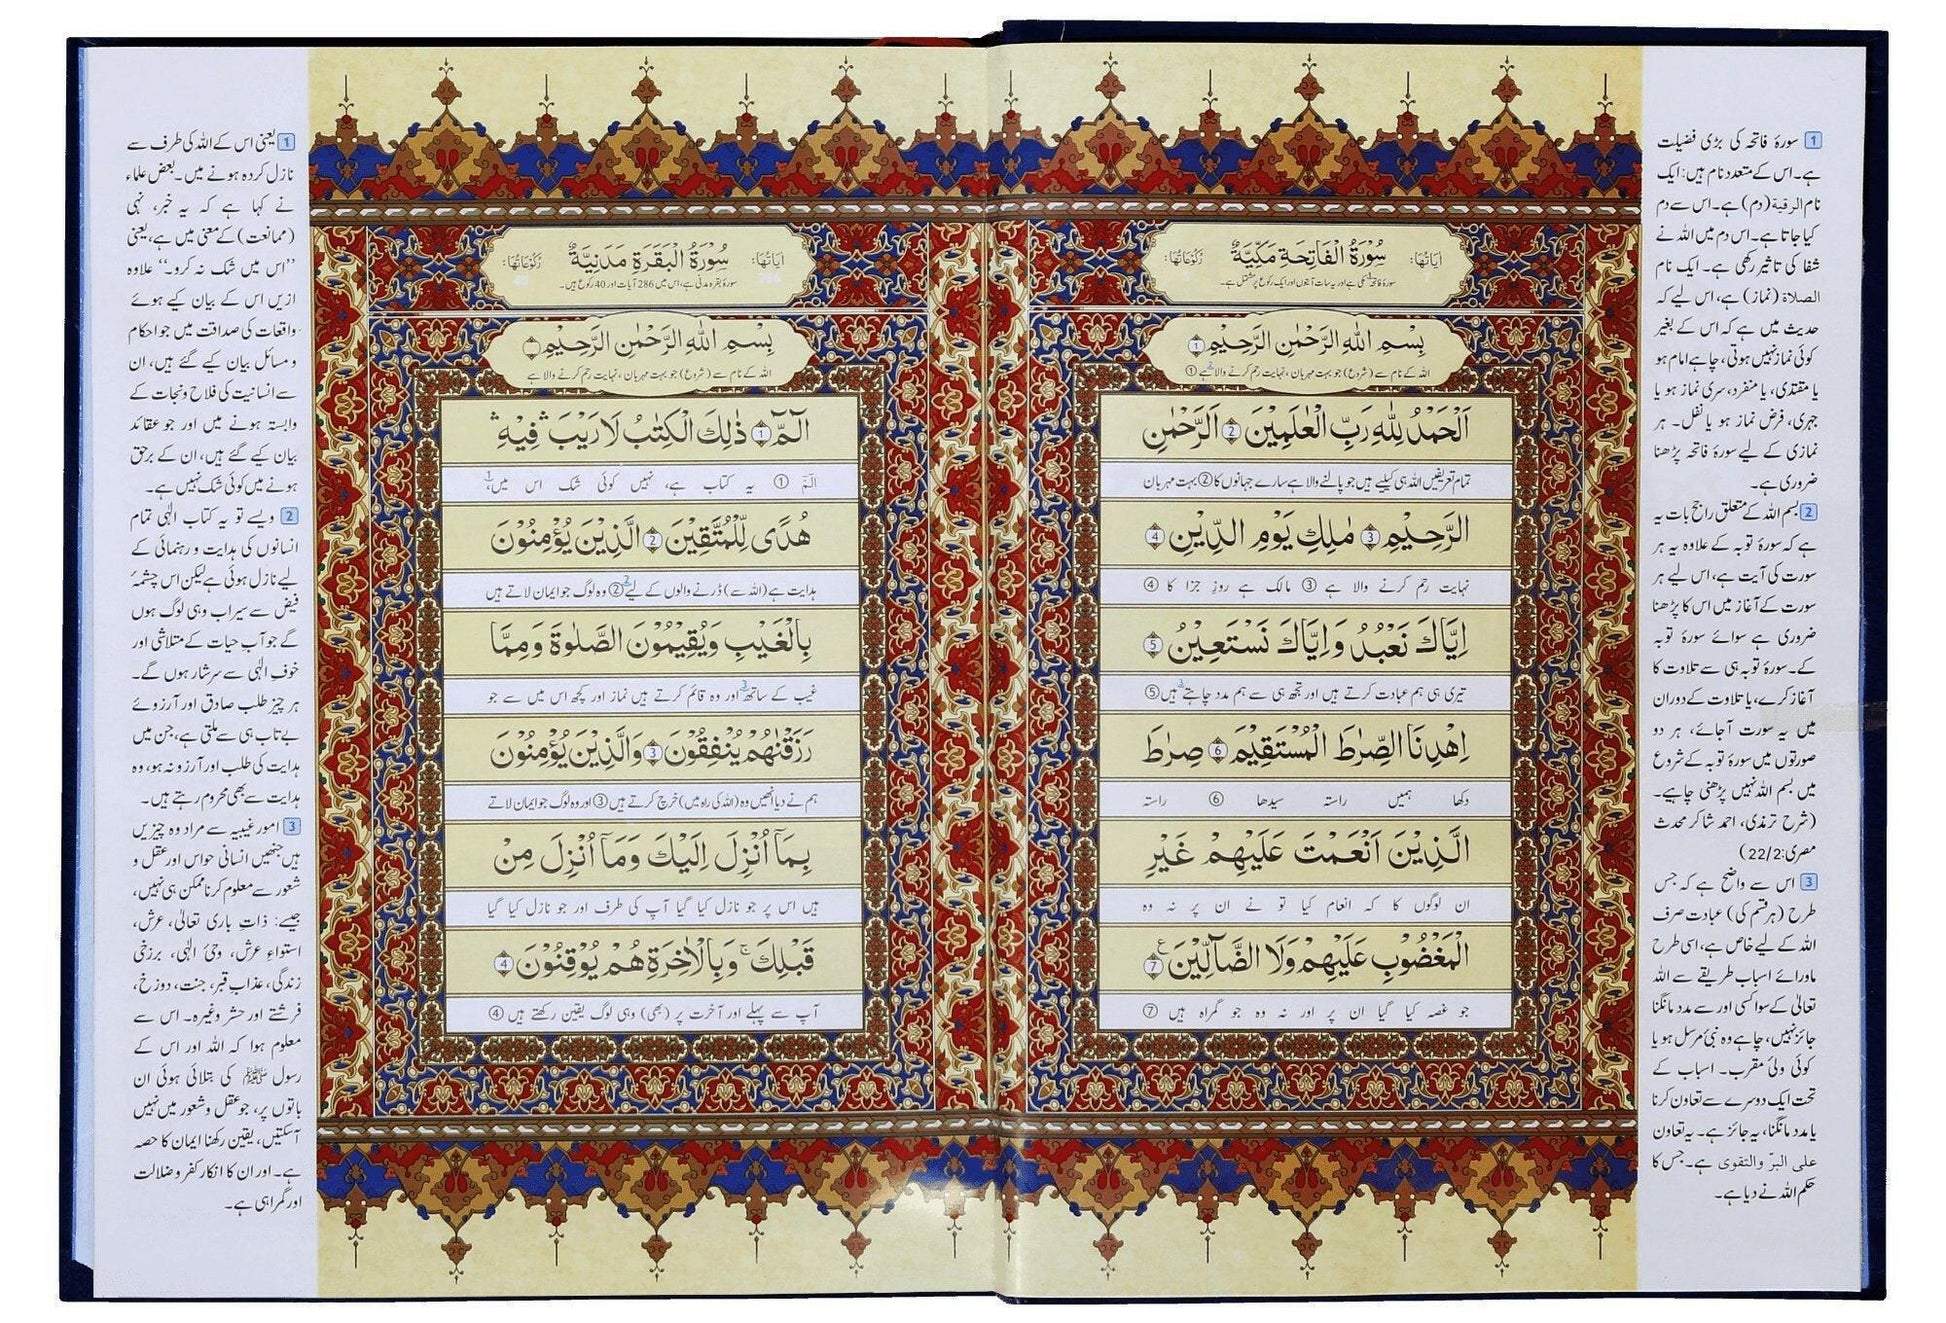 سُوْرَةُ الْفَاتِحَةِ مَكِّيَّةٌ
اٰيَاتُهَا:
رُكُوْعَاتُهَا:
سورۂ فاتحہ مکی ہے اور یہ سات آیتوں اور ایک رکوع پر مشتمل ہے۔
بِسْمِ اللّٰهِ الرَّحْمٰنِ الرَّحِيْمِ 1
اللہ کے نام سے (شروع) جو بہت مہربان، نہایت رحم کرنے والا ہے ①
اَلْحَمْدُ لِلّٰهِ رَبِّ الْعٰلَمِيْنَ 2 الرَّحْمٰنِ
تمام تعریفیں اللہ ہی کیلیے ہیں جو پالنے والا ہے سارے جہانوں کا ② بہت مہربان
الرَّحِيْمِ 3 مٰلِكِ يَوْمِ الدِّيْنِ 4
نہایت رحم کرنے والا ہے ③ مالک ہے روزِ جزا کا ④
اِيَّاكَ نَعْبُدُ وَاِيَّاكَ نَسْتَعِيْنُ 5
تیری ہی ہم عبادت کرتے ہیں اور تجھ ہی سے ہم مدد چاہتے ہیں 3 ⑤
اِهْدِنَا الصِّرَاطَ الْمُسْتَقِيْمَ 6 صِرَاطَ
دکھا ہمیں راستہ سیدھا ⑥ راستہ
الَّذِيْنَ اَنْعَمْتَ عَلَيْهِمْ غَيْرِ
ان لوگوں کا کہ انعام کیا تو نے ان پر نہ وہ
الْمَغْضُوْبِ عَلَيْهِمْ وَلَا الضَّآلِّيْنَ ع 7
جو غصہ کیا گیا ان پر اور نہ وہ جو گمراہ ہیں ⑦
1 سورۂ فاتحہ کی بڑی فضیلت
ہے۔ اس کے متعدد نام ہیں: ایک
نام الرقية (دم) ہے۔ اس سے دم
کیا جاتا ہے۔ اس دم میں اللہ نے
شفا کی تاثیر رکھی ہے۔ ایک نام
الصلاة (نماز) ہے، اس لیے کہ
حدیث میں ہے کہ اس کے بغیر
کوئی نماز نہیں ہوتی، چاہے امام ہو
یا مقتدی، یا منفرد، سری نماز ہو یا
جہری، فرض نماز ہو یا نفل۔ ہر
نمازی کے لیے سورۂ فاتحہ پڑھنا
ضروری ہے۔
2 بسم اللہ کے متعلق راجح بات یہ
ہے کہ سورۂ توبہ کے علاوہ یہ ہر
سورت کی آیت ہے، اس لیے ہر
سورت کے آغاز میں اس کا پڑھنا
ضروری ہے سوائے سورۂ توبہ
کے۔ سورۂ توبہ ہی سے تلاوت کا
آغاز کرے، یا تلاوت کے دوران
میں یہ سورت آجائے، ہر دو
صورتوں میں سورۂ توبہ کے شروع
میں بسم اللہ نہیں پڑھنی چاہیے۔
(شرح ترمذی، احمد شاکر محدث
مصری: 22/2)
3 اس سے واضح ہے کہ جس
طرح (ہر قسم کی) عبادت صرف
اللہ کے لیے خاص ہے، اسی طرح
ماورائے اسباب طریقے سے اللہ
تعالیٰ کے سوا کسی اور سے مدد مانگنا
جائز نہیں، چاہے وہ نبیٔ مرسل ہو یا
کوئی ولیٔ مقرب۔ اسباب کے
تحت ایک دوسرے سے تعاون کرنا
یا مدد مانگنا، یہ جائز ہے۔ یہ تعاون
على البرّ والتقوى ہے۔ جس کا
حکم اللہ نے دیا ہے۔
سُوْرَةُ الْبَقَرَةِ مَدَنِيَّةٌ
اٰيَاتُهَا: 286
رُكُوْعَاتُهَا: 40
سورۂ بقرہ مدنی ہے، اس میں 286 آیات اور 40 رکوع ہیں۔
بِسْمِ اللّٰهِ الرَّحْمٰنِ الرَّحِيْمِ
اللہ کے نام سے (شروع) جو بہت مہربان، نہایت رحم کرنے والا ہے
الٓمّٓ 1 ذٰلِكَ الْكِتٰبُ لَا رَيْبَ ۛ فِيْهِ ۛ
الٓمّٓ ① یہ کتاب ہے، نہیں کوئی شک اس میں، 1
هُدًى لِّلْمُتَّقِيْنَ 2 الَّذِيْنَ يُؤْمِنُوْنَ
ہدایت ہے (اللہ سے) ڈرنے والوں کے لیے 2 ② وہ لوگ جو ایمان لاتے ہیں
بِالْغَيْبِ وَيُقِيْمُوْنَ الصَّلٰوةَ وَمِمَّا
غیب کے ساتھ 3 اور وہ قائم کرتے ہیں نماز اور کچھ اس میں سے جو
رَزَقْنٰهُمْ يُنْفِقُوْنَ 3 وَالَّذِيْنَ يُؤْمِنُوْنَ
ہم نے دیا انھیں وہ (اللہ کی راہ میں) خرچ کرتے ہیں ③ اور وہ لوگ جو ایمان لاتے
بِمَآ اُنْزِلَ اِلَيْكَ وَمَآ اُنْزِلَ مِنْ
ہیں اس پر جو نازل کیا گیا آپ کی طرف اور جو نازل کیا گیا
قَبْلِكَ ۚ وَبِالْاٰخِرَةِ هُمْ يُوْقِنُوْنَ 4
آپ سے پہلے اور آخرت پر (بھی) وہی لوگ یقین رکھتے ہیں ④
1 یعنی اس کے اللہ کی طرف سے
نازل کردہ ہونے میں۔ بعض علماء
نے کہا ہے کہ یہ خبر، نہی
(ممانعت) کے معنی میں ہے، یعنی
”اس میں شک نہ کرو۔“ علاوہ
ازیں اس کے بیان کیے ہوئے
واقعات کی صداقت میں جو احکام
و مسائل بیان کیے گئے ہیں، ان
سے انسانیت کی فلاح و نجات کے
وابستہ ہونے میں اور جو عقائد
بیان کیے گئے ہیں، ان کے برحق
ہونے میں کوئی شک نہیں ہے۔
2 ویسے تو یہ کتاب الٰہی تمام
انسانوں کی ہدایت و رہنمائی کے
لیے نازل ہوئی ہے لیکن اس چشمۂ
فیض سے سیراب وہی لوگ ہوں
گے جو آب حیات کے متلاشی اور
خوفِ الٰہی سے سرشار ہوں گے۔
ہر چیز طلب صادق اور آرزوئے
بے تاب ہی سے ملتی ہے، جن میں
ہدایت کی طلب اور آرزو نہ ہو، وہ
ہدایت سے بھی محروم رہتے ہیں۔
3 امور غیبیہ سے مراد وہ چیزیں
ہیں جنھیں انسانی حواس اور عقل و
شعور سے معلوم کرنا ممکن ہی نہیں،
جیسے: ذاتِ باری تعالیٰ، عرش،
استواءِ عرش، وحیٔ الٰہی، برزخی
زندگی، عذاب قبر، جنت، دوزخ،
فرشتے اور حشر وغیرہ۔ اس سے
معلوم ہوا کہ اللہ اور اس کے
رسول ﷺ کی بتلائی ہوئی ان
باتوں پر، جو عقل و شعور میں نہیں
آسکتیں، یقین رکھنا ایمان کا حصہ
ہے۔ اور ان کا انکار کفر و ضلالت
اور گمراہی ہے۔